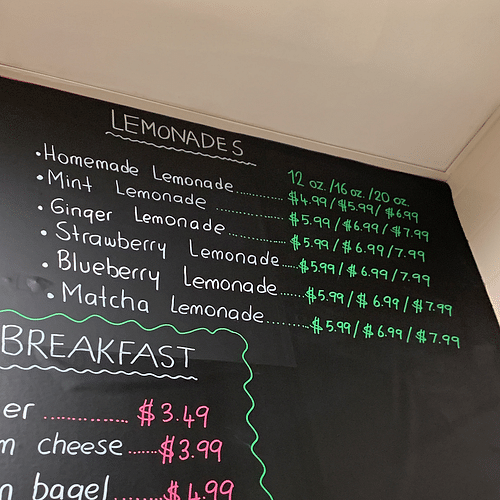 LEMONADES
12 oz./16 oz./20 oz.
• Homemade Lemonade............ $4.99/$5.99/$6.99
• Mint Lemonade ................ $5.99/$6.99/$7.99
• Ginger Lemonade .............. $5.99/$6.99/7.99
• Strawberry Lemonade..... $5.99/$6.99/7.99
• Blueberry Lemonade...... $5.99/$6.99/$7.99
• Matcha Lemonade......... $5.99/$6.99/$7.99
BREAKFAST
er .............. $3.49
m cheese ...... $3.99
n bagel ........ $4.99